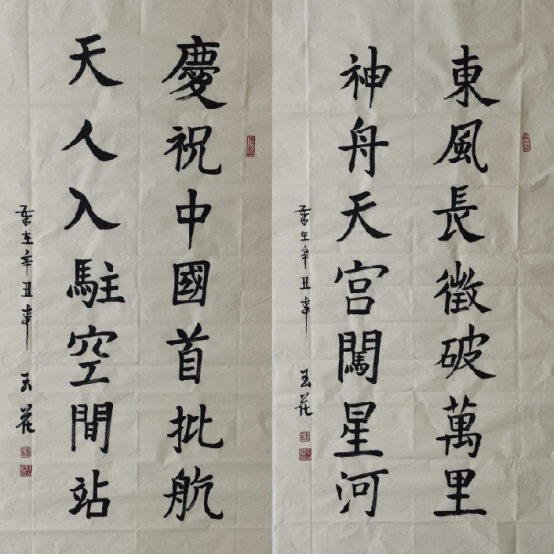 慶祝中國首批航
天人入駐空間站
歲在辛丑 玉花
東風長徵破萬里
神舟天宮闖星河
歲在辛丑 玉花